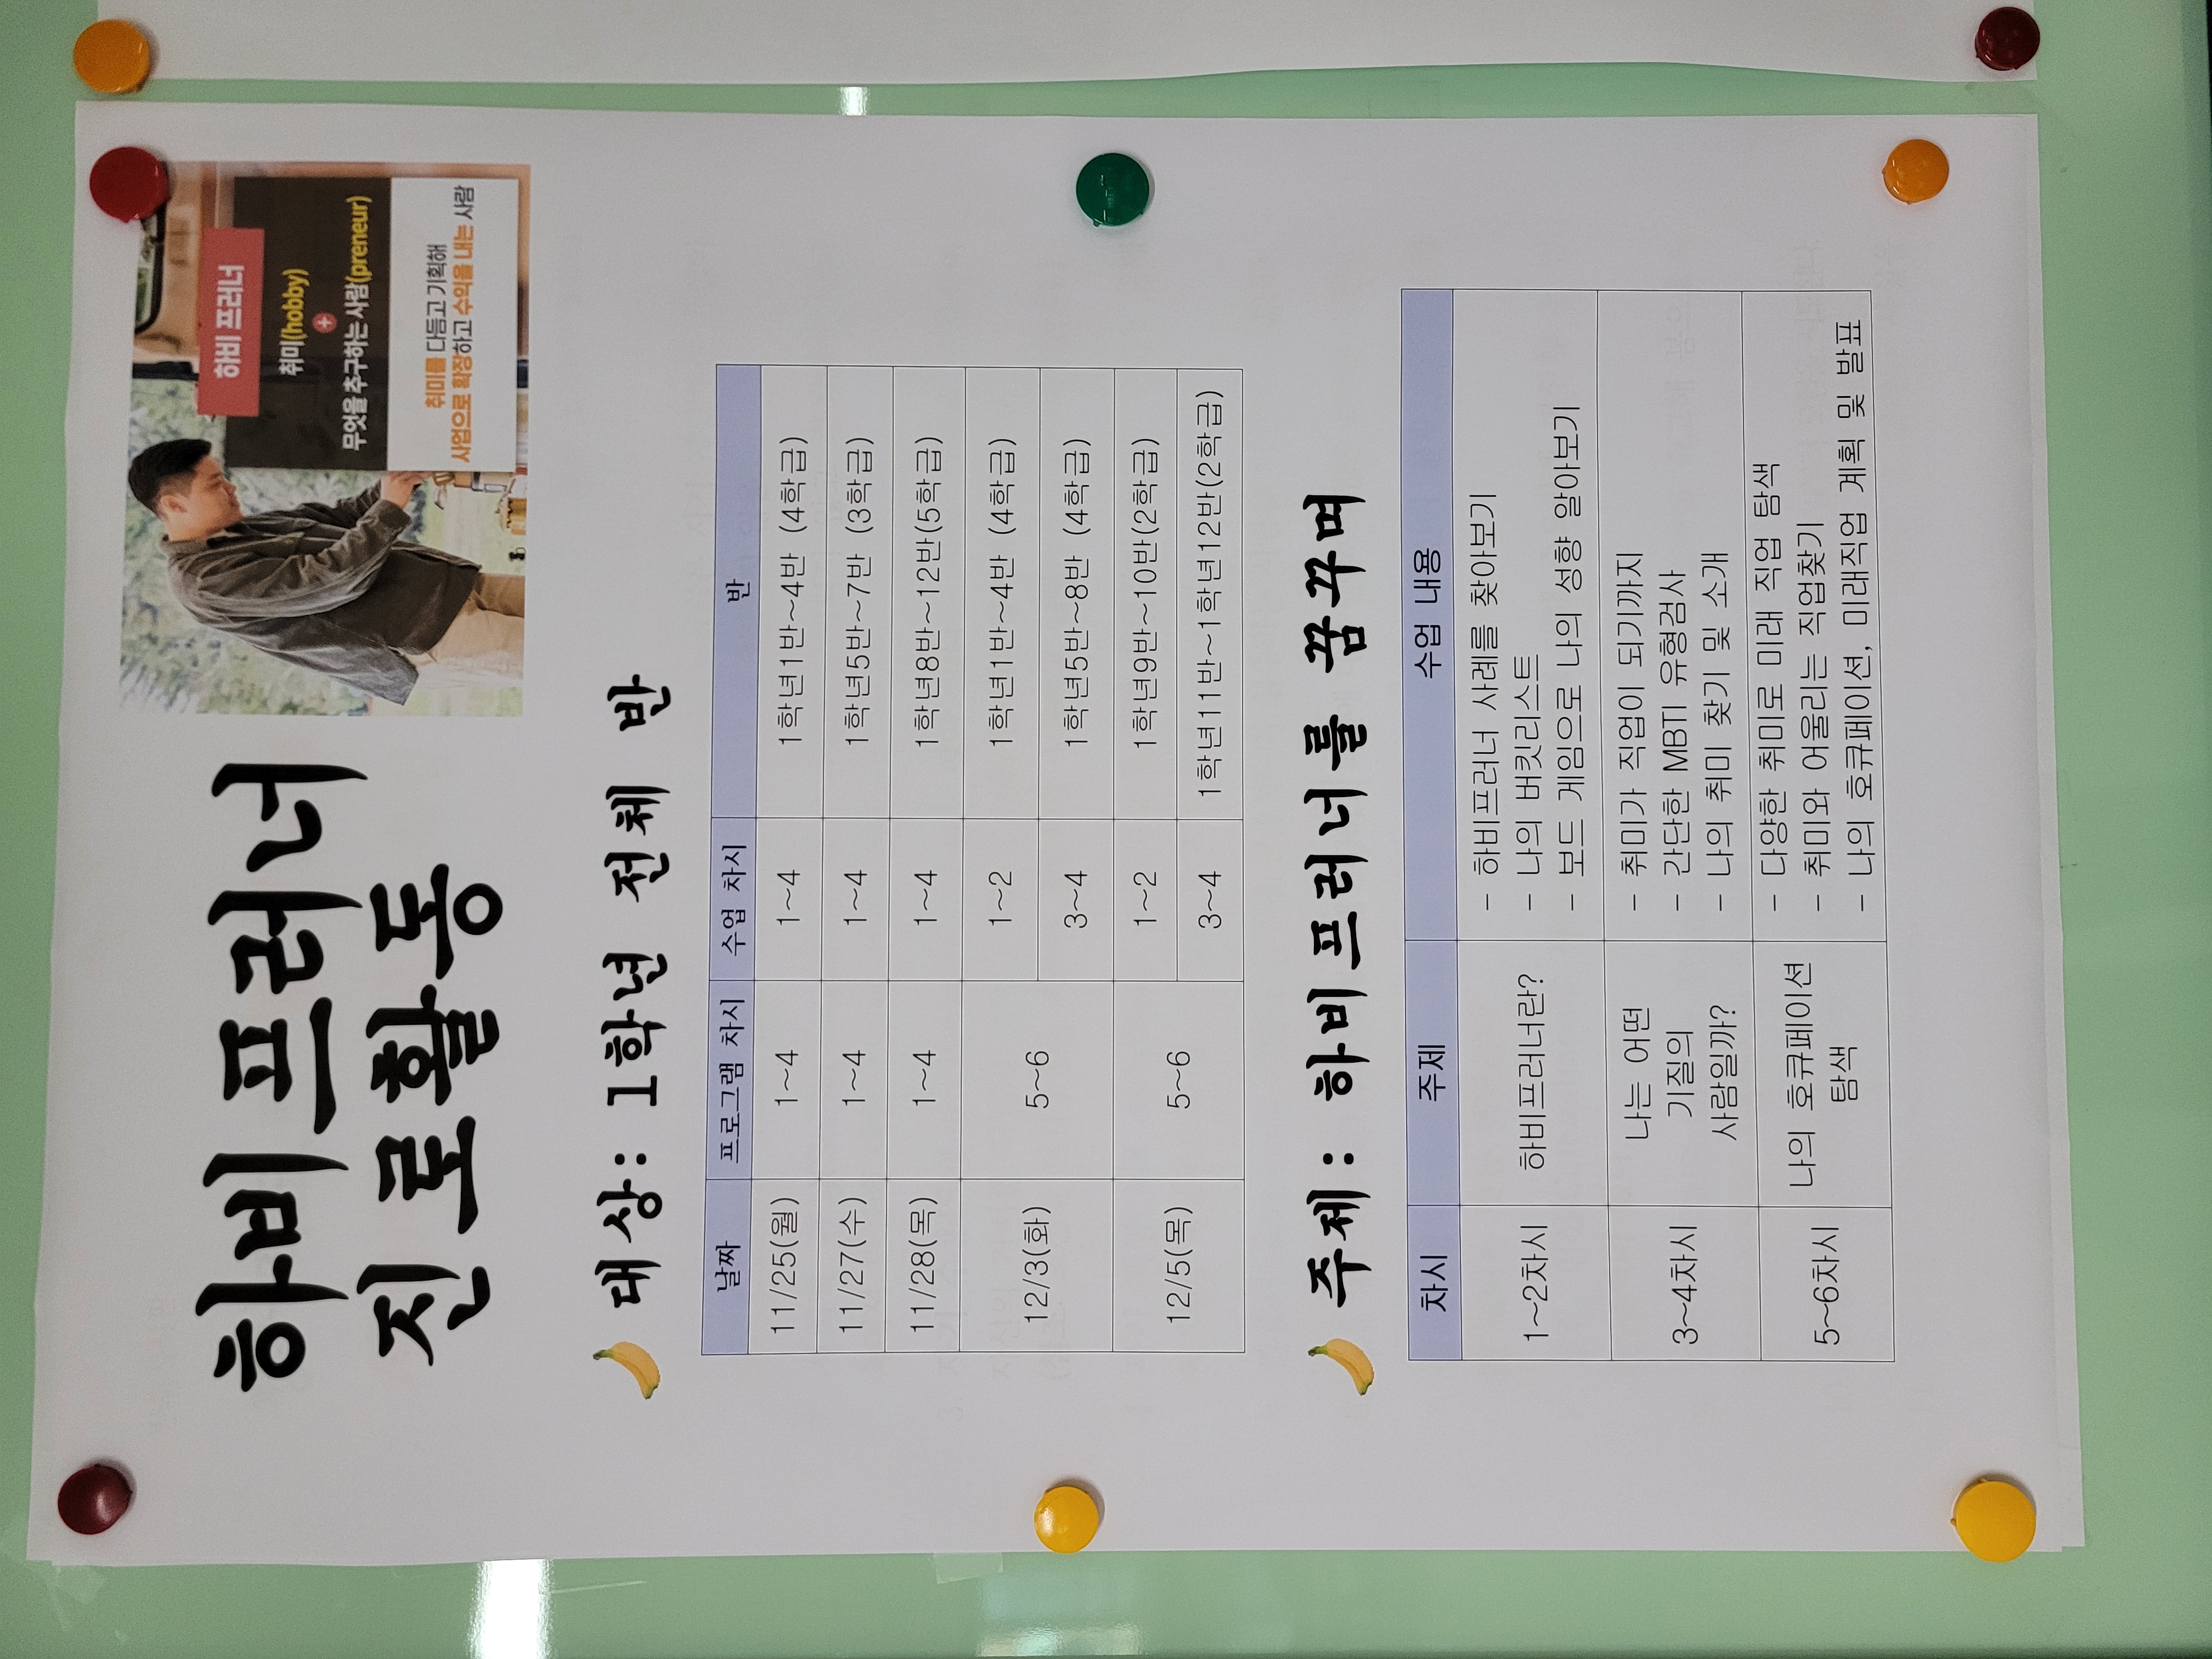 하비프러너
진로활동
하비 프러너
취미(hobby)
+
무엇을 추구하는 사람(preneur)
취미를 다듬고 기획해
사업으로 확장하고 수익을 내는 사람
대상: 1학년 전체 반
날짜 프로그램 차시 수업 차시 반
11/25(월) 1~4 1~4 1학년1반~4반 (4학급)
11/27(수) 1~4 1~4 1학년5반~7반 (3학급)
11/28(목) 1~4 1~4 1학년8반~12반(5학급)
12/3(화) 5~6 1~2 1학년1반~4반 (4학급)
3~4 1학년5반~8반 (4학급)
12/5(목) 5~6 1~2 1학년9반~10반(2학급)
3~4 1학년11반~1학년12반(2학급)
주제: 하비프러너를 꿈꾸며
차시 주제 수업 내용
1~2차시 하비프러너란?
- 하비프러너 사례를 찾아보기
- 나의 버킷리스트
- 보드 게임으로 나의 성향 알아보기
3~4차시 나는 어떤
기질의
사람일까?
- 취미가 직업이 되기까지
- 간단한 MBTI 유형검사
- 나의 취미 찾기 및 소개
5~6차시 나의 호큐페이션
탐색
- 다양한 취미로 미래 직업 탐색
- 취미와 어울리는 직업찾기
- 나의 호큐페이션, 미래직업 계획 및 발표